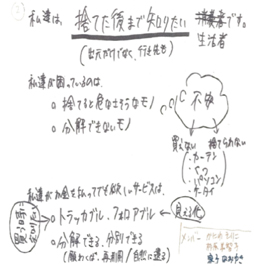 私達は、捨てた後まで知りたい 消費者です。
生活者
(出元だけでなく、行き先も)
私達が困っているのは、
○ 捨てると危なそうなモノ
○ 分解できないモノ
不安
買えない
捨てられない
・カーテン
・パソコン
・ケータイ
私達がお金を払ってでも欲しいサービスは、
買う時に
○トラッカブル、フォロアブル
見える化
○分解できる、分別できる
(願わくば、再利用/自然に還る)
メンバー